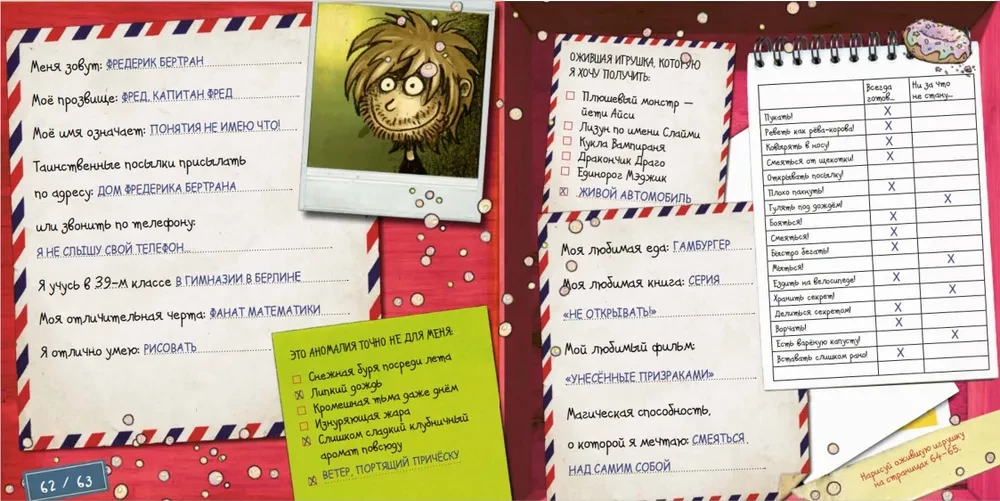 Меня зовут: ФРЕДЕРИК БЕРТРАН
Моё прозвище: ФРЕД, КАПИТАН ФРЕД
Моё имя означает: ПОНЯТИЯ НЕ ИМЕЮ ЧТО!
Таинственные посылки присылать
по адресу: ДОМ ФРЕДЕРИКА БЕРТРАНА
или звонить по телефону:
Я НЕ СЛЫШУ СВОЙ ТЕЛЕФОН...
Я учусь в 39-м классе В ГИМНАЗИИ В БЕРЛИНЕ
Моя отличительная черта: ФАНАТ МАТЕМАТИКИ
Я отлично умею: РИСОВАТЬ
ЭТО АНОМАЛИЯ ТОЧНО НЕ ДЛЯ МЕНЯ:
Снежная буря посреди лета
X Липкий дождь
Кромешная тьма даже днём
Изнуряющая жара
X Слишком сладкий клубничный
аромат повсюду
X ВЕТЕР, ПОРТЯЩИЙ ПРИЧЁСКУ
62 / 63
ОЖИВШАЯ ИГРУШКА, КОТОРУЮ
Я ХОЧУ ПОЛУЧИТЬ:
Плюшевый монстр —
йети Айси
Лизун по имени Слайми
Кукла Вампираня
Дракончик Драго
Единорог Мэджик
X ЖИВОЙ АВТОМОБИЛЬ
Моя любимая еда: ГАМБУРГЕР
Моя любимая книга: СЕРИЯ
«НЕ ОТКРЫВАТЬ!»
Мой любимый фильм:
«УНЕСЁННЫЕ ПРИЗРАКАМИ»
Магическая способность,
о которой я мечтаю: СМЕЯТЬСЯ
НАД САМИМ СОБОЙ
Всегда готов... Ни за что не стану...
Пукать! X
Реветь как рёва-корова! X
Ковырять в носу! X
Смеяться от щекотки! X
Открывать посылку!
Плохо пахнуть! X
Гулять под дождём! X
Бояться! X
Смеяться! X
Быстро бегать! X
Мыться! X
Ездить на велосипеде! X
Хранить секрет! X
Делиться секретом! X
Ворчать! X
Есть варёную капусту! X
Вставать слишком рано! X
Нарисуй ожившую игрушку
на страницах 64-65.